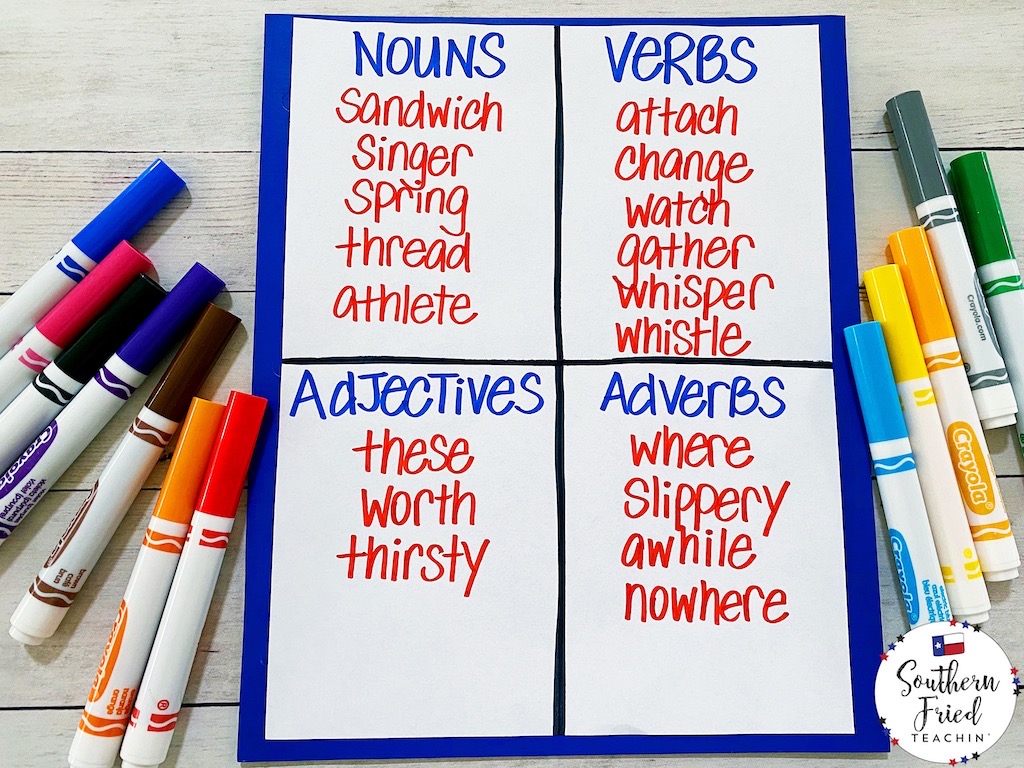 NOUNS
sandwich
singer
spring
thread
athlete
VERBS
attach
change
watch
gather
whisper
whistle
ADJECTIVES
these
worth
thirsty
ADVERBS
where
slippery
awhile
nowhere
Crayola
brown
café
brun
Crayola.com
Crayola
Crayola
Southern
Fried
TEACHIN'